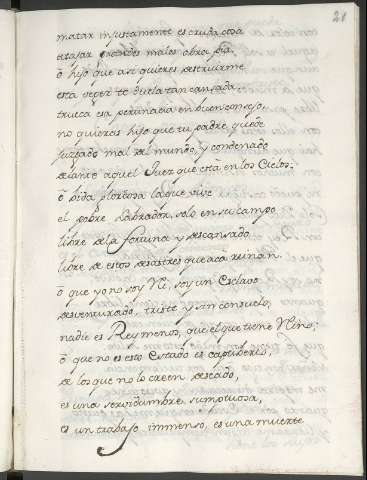 21
matar injustamente es cruda cosa
atajar grandes males obra pia,
ô hijo que asi quieres destruirme
esta vegez te duela tan cansada
trueca esa pertinacia en buen consejo,
no quieras hijo que tu padre quede
juzgado mal del mundo, y condenado
delante aquel Juez que està en los Cielos;
ô bida gloriosa la que vive
el pobre Labrador, solo en su campo
libre de la fortuna y descansado
libre de estos desastres que aca reinan
ô que yo no soy Rei, soy un Esclavo
desventurado, triste y sin consuelo,
nadie es Rey menos, que el que tiene Reino;
ô que no es esto Estado es captiberio,
de los que no lo creen deseado,
es una servidumbre sumptuosa,
es un trabajo immenso, es una muerte